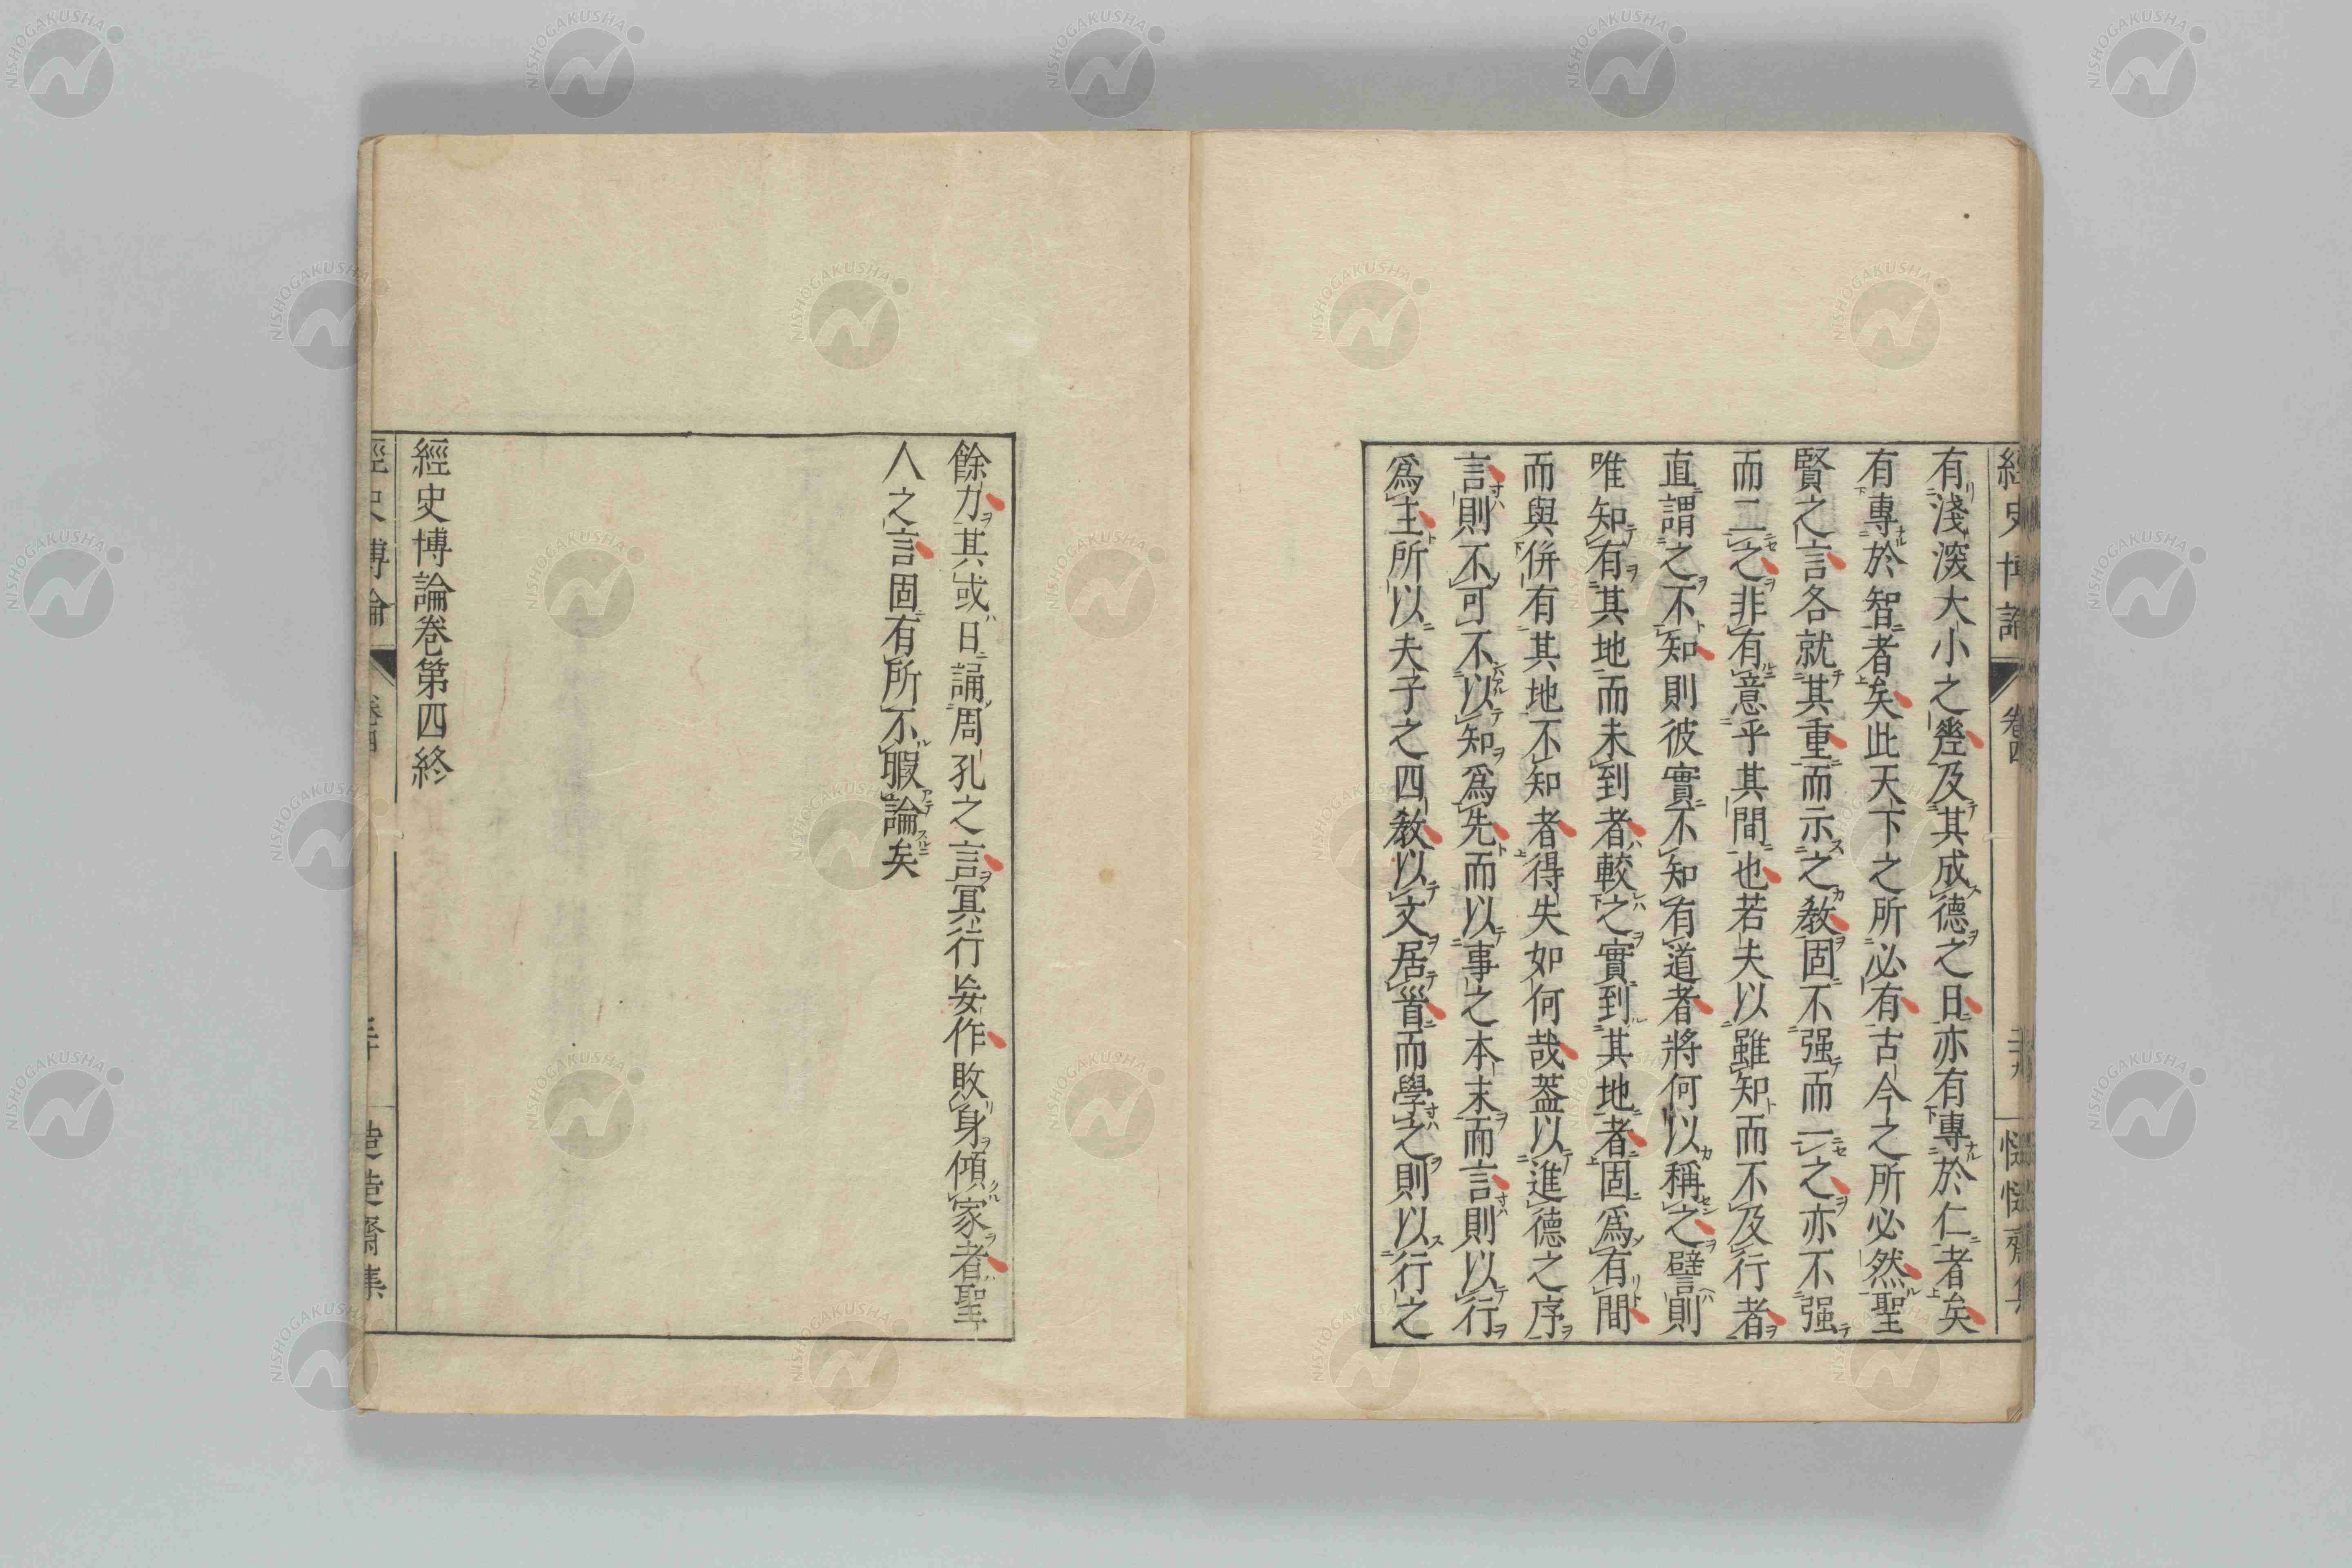 有淺深大小之差及其成德之日亦有專於仁者矣
有專於智者矣此天下之所必有古今之所必然聖
賢之言各就其重而示之教固不强而一之亦不强
而二之非有意乎其間也若夫以雖知而不及行者
直謂之不知則彼實不知有道者將何以稱之譬則
唯知有其地而未到者較之實到其地者固爲有間
而與併有其地不知者得失如何哉葢以進德之序
言則不可不以知爲先而以事之本末而言則以行
爲主所以夫子之四教以文居首而學之則以行之
餘力其或日誦周孔之言冥行妄作敗身傾家者聖
人之言固有所不暇論矣
經史博論卷第四終
經史博論
卷四
經史博論
卷四